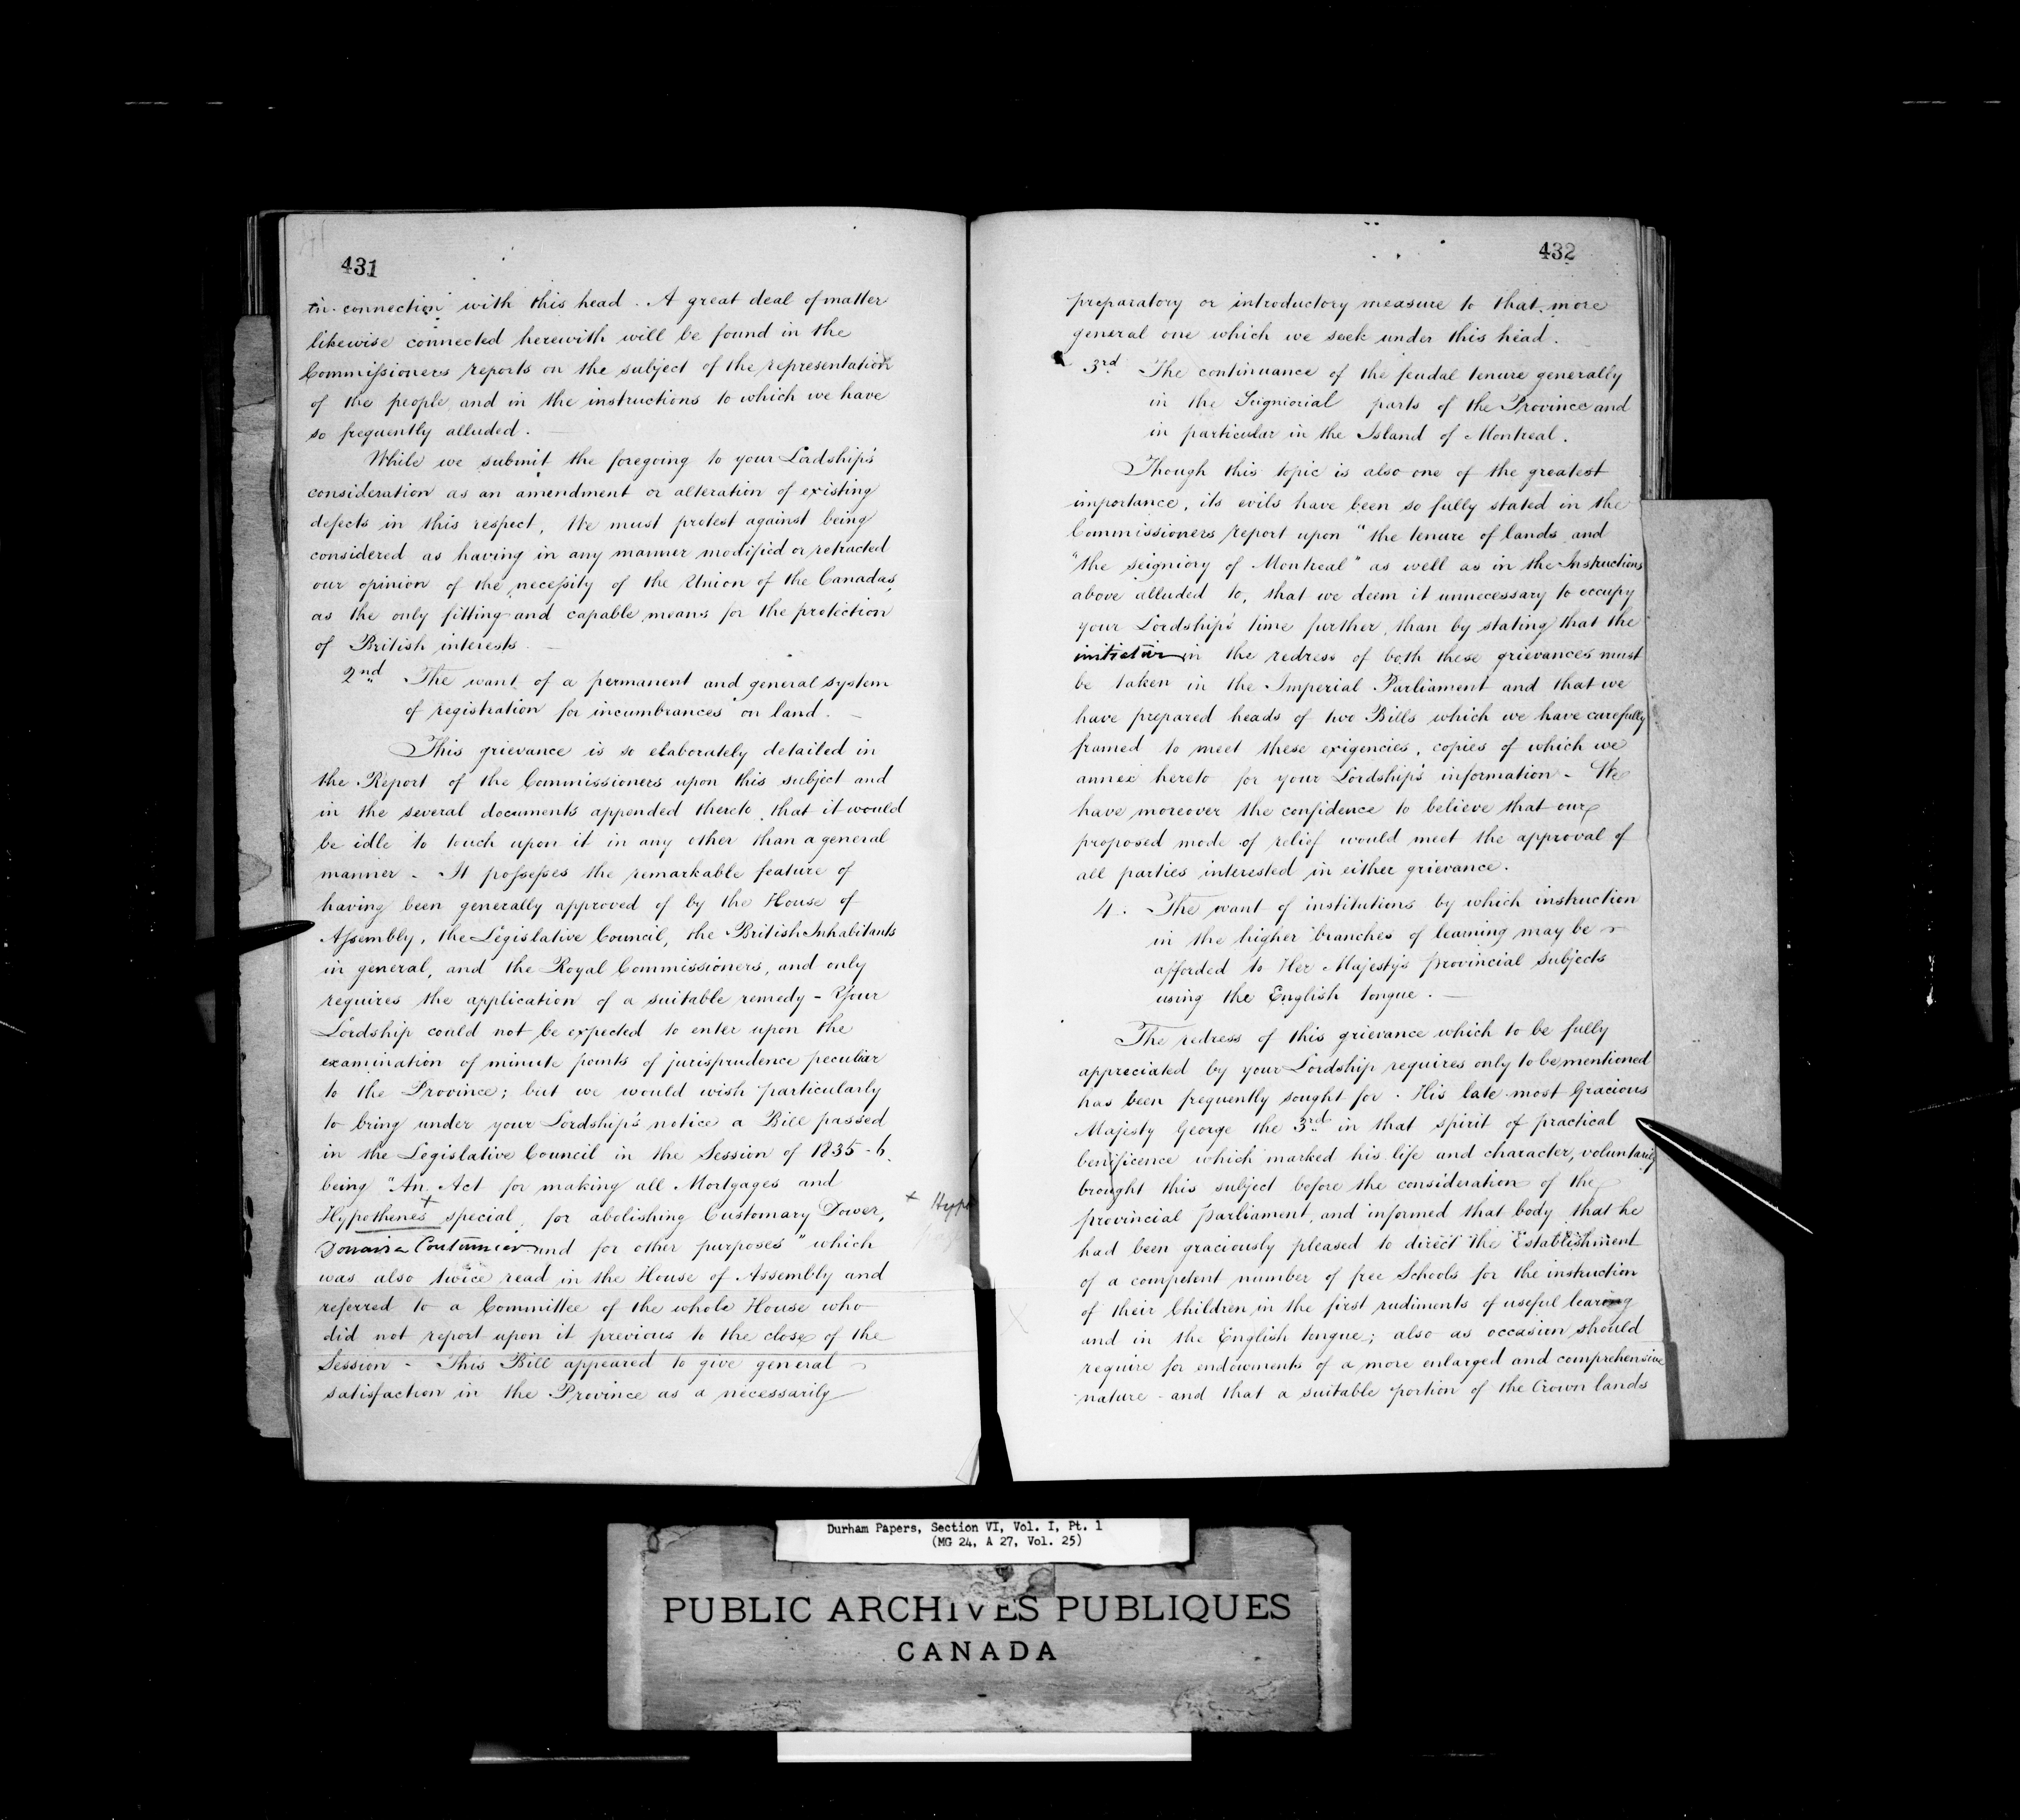 431
in connection with this head. A great deal of matter
likewise connected herewith will be found in the
Commissioners reports on the subject of the representation
of the people, and in the instructions to which we have
so frequently alluded.
While we submit the foregoing to your Lordship's
consideration as an amendment or alteration of existing
defects in this respect, We must protest against being
considered as having in any manner modified or retracted
our opinion of the necessity of the Union of the Canadas,
as the only fitting and capable means for the protection
of British interests.
2nd The want of a permanent and general system
of registration for incumbrances on land.
This grievance is so elaborately detailed in
the Report of the Commissioners upon this subject and
in the several documents appended thereto, that it would
be idle to touch upon it in any other than a general
manner - It possesses the remarkable feature of
having been generally approved of by the House of
Assembly, the Legislative Council, the British Inhabitants
in general, and the Royal Commissioners, and only
requires the application of a suitable remedy - Your
Lordship could not be expected to enter upon the
examination of minute points of jurisprudence peculiar
to the Province; but we would wish particularly
to bring under your Lordship's notice a Bill passed
in the Legislative Council in the Session of 1835-6.
being "An Act for making all Mortgages and
Hypothenes + special, for abolishing Customary Dower, + Hypo
Douaire Coutumier and for other purposes" which
was also twice read in the House of Assembly and
referred to a Committee of the whole House who
did not report upon it previous to the close of the
Session - This Bill appeared to give general
satisfaction in the Province as a necessarily
432
preparatory or introductory measure to that more
general one which we seek under this head.
3rd The continuance of the feudal tenure generally
in the Seigniorial parts of the Province and
in particular in the Island of Montreal.
Though this topic is also one of the greatest
importance, its evils have been so fully stated in the
Commissioners report upon "the tenure of lands and
"the seigniory of Montreal" as well as in the Instructions
above alluded to, that we deem it unnecessary to occupy
your Lordship's time further, than by stating that the
initiative in the redress of both these grievances must
be taken in the Imperial Parliament and that we
have prepared heads of two Bills which we have carefully
framed to meet these exigencies, copies of which we
annex hereto for your Lordship's information - We
have moreover the confidence to believe that our
proposed mode of relief would meet the approval of
all parties interested in either grievance.
4. The want of institutions by which instruction
in the higher branches of learning may be
afforded to Her Majesty's provincial subjects
using the English tongue.
The redress of this grievance which to be fully
appreciated by your Lordship requires only to be mentioned
has been frequently sought for. His late most Gracious
Majesty George the 3rd in that spirit of practical
benificence which marked his life and character, voluntarily
brought this subject before the consideration of the
provincial Parliament, and informed that body that he
had been graciously pleased to direct the Establishment
of a competent number of free Schools for the instruction
of their Children in the first rudiments of useful learing
and in the English tongue; also as occasion should
require for endowments of a more enlarged and comprehensive
nature - and that a suitable portion of the Crown lands
Durham Papers, Section VI, Vol. I, Pt. 1
(MG 24, A 27, Vol. 25)
PUBLIC ARCHIVES PUBLIQUES
CANADA